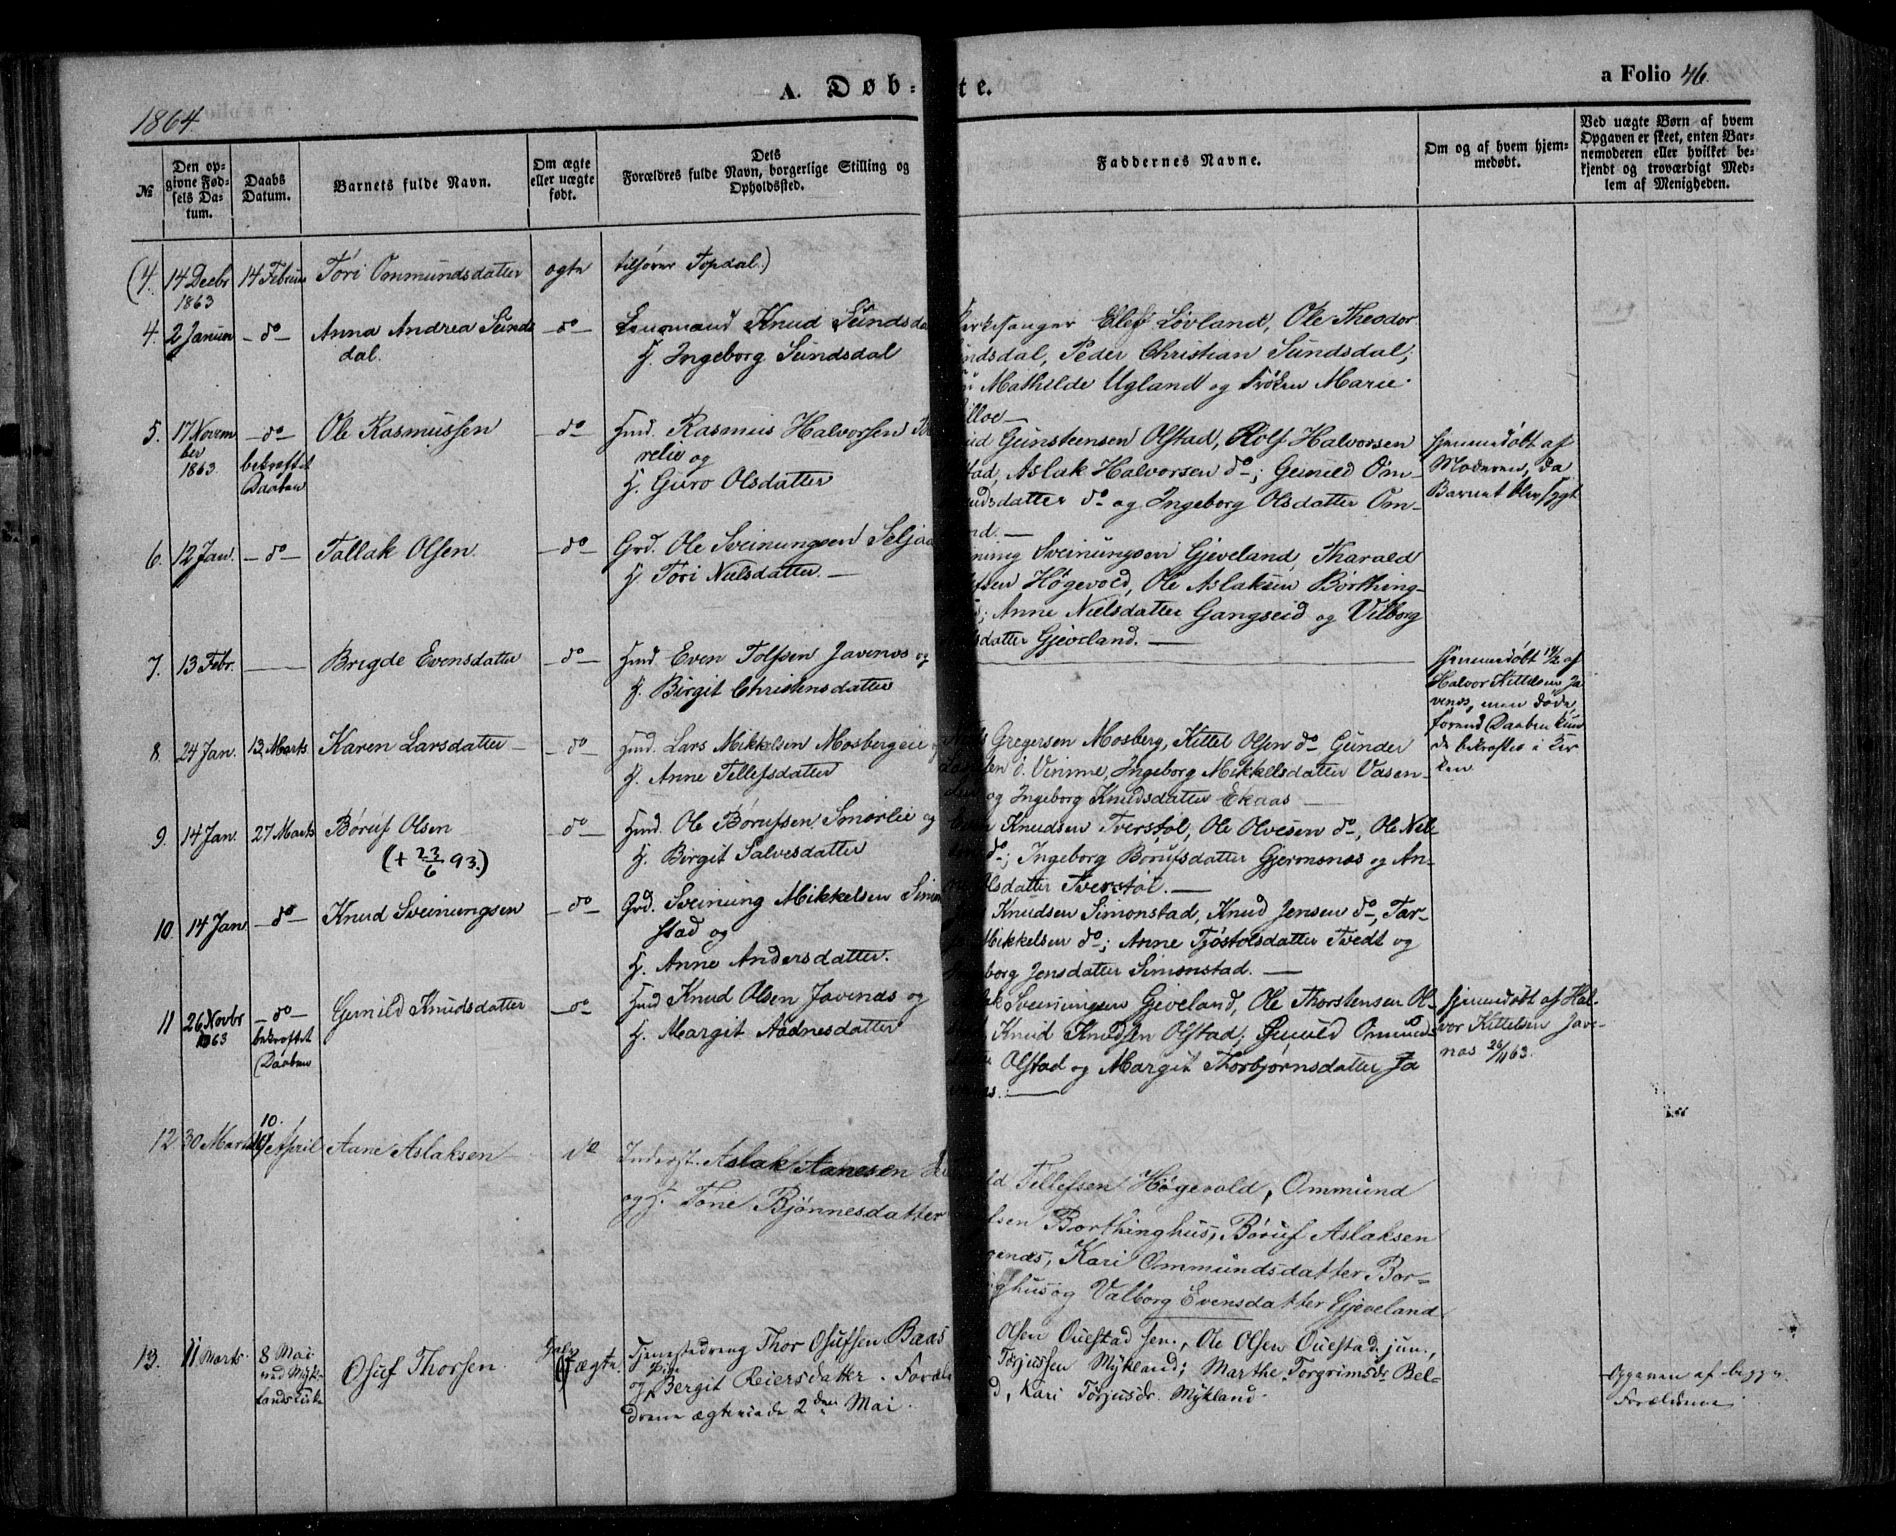 1864
A. Døb-te.
a Folio 46
№
Den op-
givne Fød-
sels Da-
tum.
Daabs
Datum.
Barnets fulde Navn.
Om ægte
eller uægte
født.
Dets
Forældres fulde Navn, borgerlige Stilling og
Opholdssted.
Faddernes Navne.
Om og af hvem hjem-
medøbt.
Ved uægte Børn af hvem
Opgaven er skeet, enten Bar-
nemoderen eller hvilket be-
kjendt og troværdigt Med-
lem af Menigheden.
(4. 14 Decbr 14 Februar Töri Ommundsdatter ægte tilhører Topdal.)
1863
4. 2 Januar - do - Anna Andrea Sunds - do - Lensmand Knud Sundsdal
dal. H. Ingeborg Sundsdal
Kirkesanger Elef Lövland, Ole Theodor
undsdal, Peder Christian Sundsdal;
Mathilde Ugland og Fröken Marie
illoe -
5. 17 Novem - do - Ole Rasmussen - do - Hmd. Rasmus Halvorsen
ber bekræftet relie og
1863 Daaben H. Guro Olsdatter
ud Gunsteensen Olstad, Rolf Halvorsen
tad, Aslak Halvorsen do; Gunild Om-
undsdatter do og Ingeborg Olsdatter Om-
nd. -
hjemmedöbt af
Moderen, da
Barnet blev sygt
6. 12 Jan. - do - Tallak Olsen - do - Grd. Ole Sveinungsen Seljaas
H. Töri Nielsdatter. -
ning Sveinungsen Gjeveland, Tharald
fsen Högevold, Ole Aslaksen Börthing-
s; Anne Nielsdatter Gangseid og Vilborg
sdatter Gjeveland. -
7. 13 Febr. - Brigde Evensdatter - do - Hmd. Even Tolfsen Javenæs og
H. Birgit Christensdatter
hjemmedöbt 14/2 af
Halvor Kittelsen Ja
venæs, men döde,
forend Daaben kun
de bekræftes i Kir
ken
8. 24 Jan. 13 Marts Karen Larsdatter - do - Hmd. Lars Mikkelsen Mosbergeie
H. Anne Tellefsdatter
Gregersen Mosberg, Kittel Olsen do, Gunder
sen i Vimme, Ingeborg Mikkelsdatter Vasen-
den og Ingeborg Knudsdatter Ekaas -
9. 14 Jan. 27 Marts Böruf Olsen - do - Hmd. Ole Börufsen Smörlie og
(+ 23/6 93.) H. Birgit Salvesdatter
Knudsen Tverstöl; Ole Olvesen do, Ole Niel-
do; Ingeborg Börufsdatter Gjermsnæs og An-
Olsdatter Tverstöl. -
10. 14 Jan - do - Knud Sveinungsen - do - Grd. Sveinung Mikkelsen Simon
stad og
H. Anne Andersdatter.
Knudsen Simonstad, Knud Jensen do, Tar-
Mikkelsen do; Anne Tjöstolsdatter Tvedt og
Ingeborg Jensdatter Simonstad. -
11 26 Novbr - do - Gunild Knudsdatter - do - Hmd Knud Olsen Javenæs og
1863 bekræftet H. Margit Aadnesdatter
Daaben
Sveinungsen Gjeveland, Ole Thorstensen Ol-
Knud Knudsen Olstad; Gunild Ommunds
Olstad og Margit Thorbjörnsdatter Ja
næs. -
hjemmedöbt af Hal-
vor Kittelsen Jave-
næs 26/11 63.
12. 30 Marts 10. April Aane Aslaksen do Inderst. Aslak Aanesen
og H. Tone Bjönnesdatter
ld Tellefsen Högevold, Ommund
lsen Borthinghus, Böruf Aslaksen
genæs, Kari Ommundsdatter Bor-
ghus og Valborg Evensdatter Gjeveland
13. 11 Marts 8 Mai Osuf Thorsen. uægte. Tjenestedreng Thor Osufsen Baas
ved Myk- og Pige Bergit Reiersdatter. Foræl
landskirke drene ægteviede 2den Mai.
Olsen Ouestad sen., Ole Olsen Ouestad jun.,
Torjussen Mykland; Marthe Torgrimsdr. Bel-
d, Kari Torjusdr. Mykland.
Opgaven af begge
Forældrene